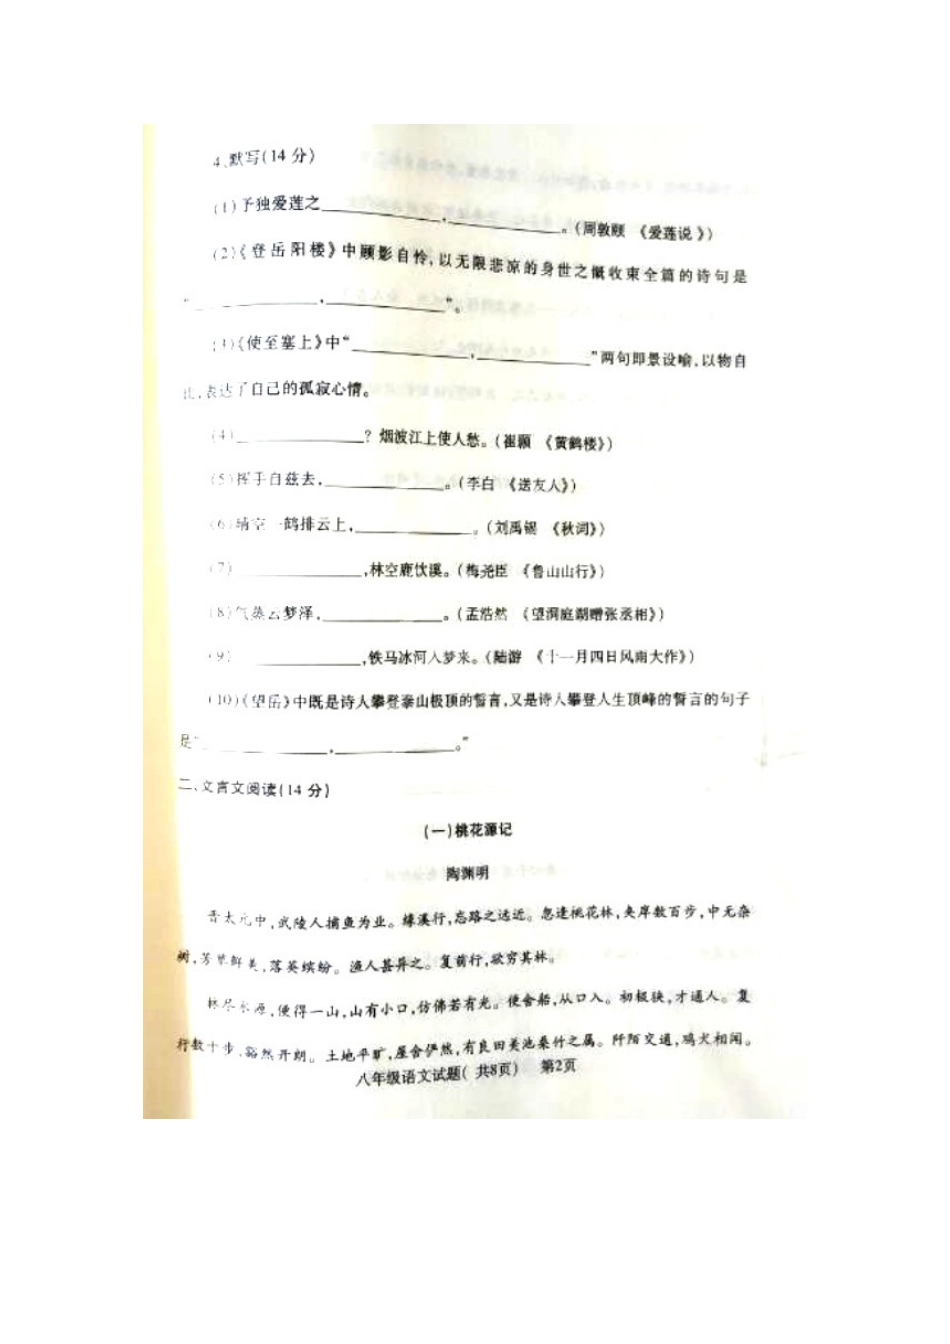 4.默写(14分)
(1)予独爱莲之____________,____________。(周敦颐 《爱莲说》)
(2)《登岳阳楼》中顾影自怜,以无限悲凉的身世之慨收束全篇的诗句是
“____________,____________”。
(3)《使至塞上》中“____________,____________”两句即景设喻,以物自
比,表达了自己的孤寂心情。
(4)____________?烟波江上使人愁。(崔颢 《黄鹤楼》)
(5)挥手自兹去,____________。(李白 《送友人》)
(6)晴空一鹤排云上,____________。(刘禹锡 《秋词》)
(7)____________,林空鹿饮溪。(梅尧臣 《鲁山山行》)
(8)气蒸云梦泽,____________。(孟浩然 《望洞庭湖赠张丞相》)
(9)____________,铁马冰河入梦来。(陆游 《十一月四日风雨大作》)
(10)《望岳》中既是诗人攀登泰山极顶的誓言,又是诗人攀登人生顶峰的誓言的句子
是“____________,____________。”
二、文言文阅读(14分)
(一)桃花源记
陶渊明
晋太元中,武陵人捕鱼为业。缘溪行,忘路之远近。忽逢桃花林,夹岸数百步,中无杂
树,芳草鲜美,落英缤纷。渔人甚异之。复前行,欲穷其林。
林尽水源,便得一山,山有小口,仿佛若有光。便舍船,从口入。初极狭,才通人。复
行数十步,豁然开朗。土地平旷,屋舍俨然,有良田美池桑竹之属。阡陌交通,鸡犬相闻。
八年级语文试题( 共8页) 第2页